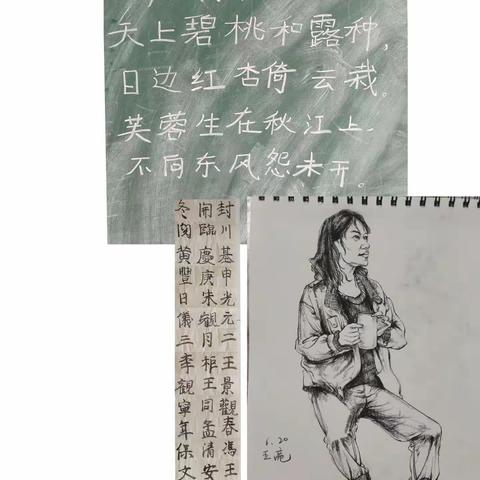 天上碧桃和露种,
日边红杏倚云栽。
芙蓉生在秋江上,
不向东风怨未开。
封川基申光元二王景觀春馮王
開臨慶庚朱觀月柜王同孟清安
冬図黄豐日儀三李觀寧年保文
6.20